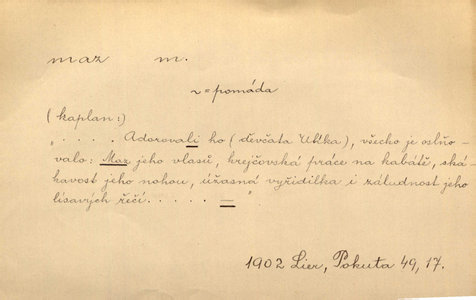 maz m.
~ = pomáda
(kaplan:)
". . . . Adorovali ho (děvčata Uhlka), všecko je oslňo-
valo: Maz jeho vlasů, krejčovská práce na kabátě, ská-
kavost jeho nohou, úžasná vyřídilka i záludnost jeho
lísavých řečí. . . . . — ".
1902 Lier, Pokuta 49, 17.